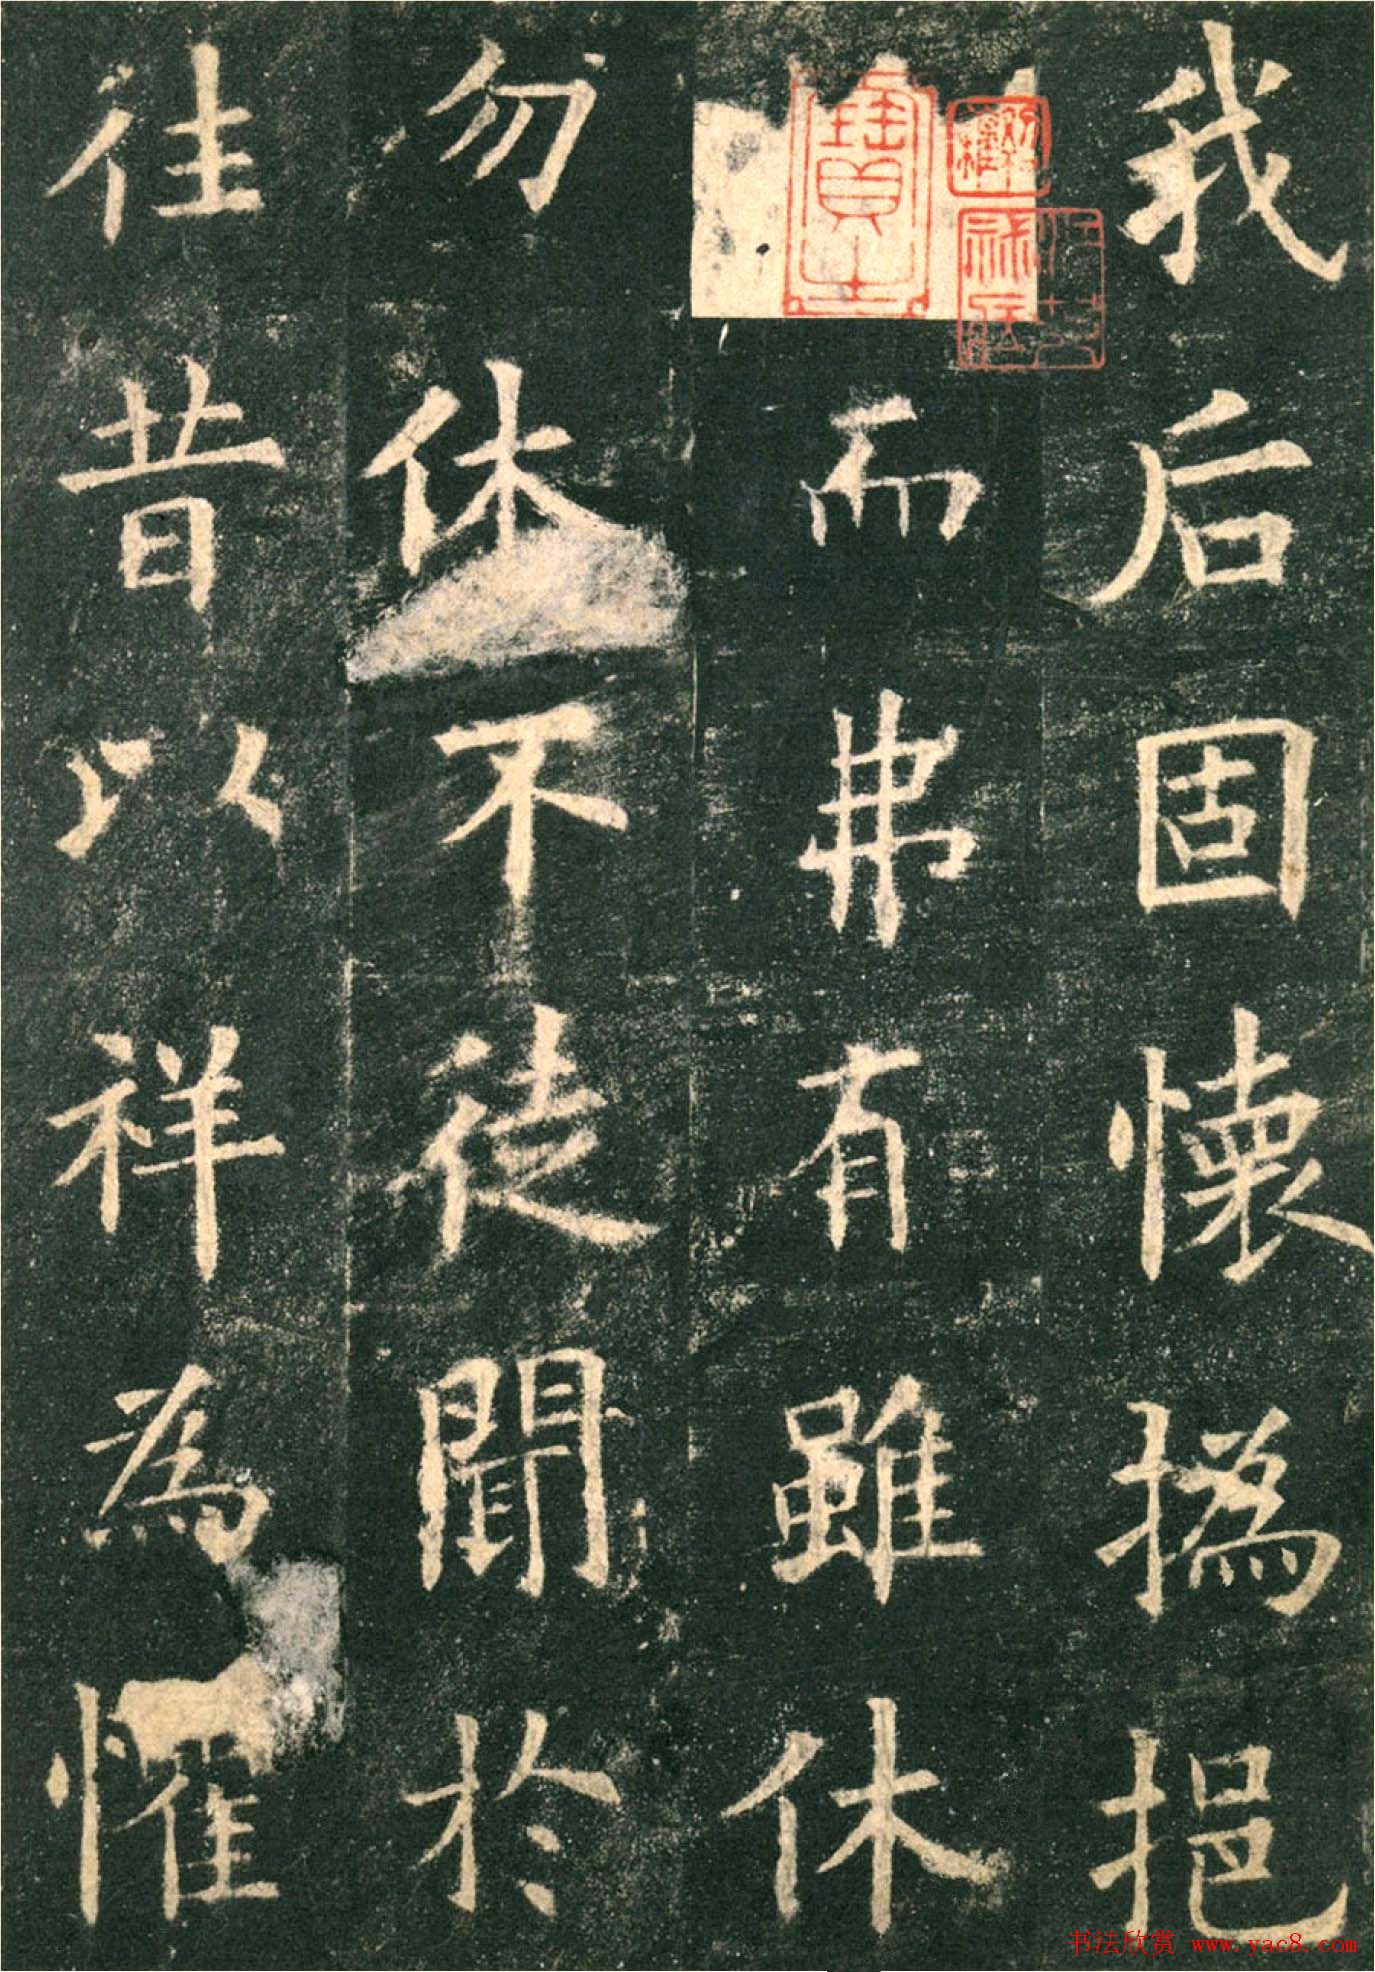 我后固懷撝挹
而弗有雖休
勿休不徒聞於
往昔以祥為懼
书法欣赏 www.yac8.com